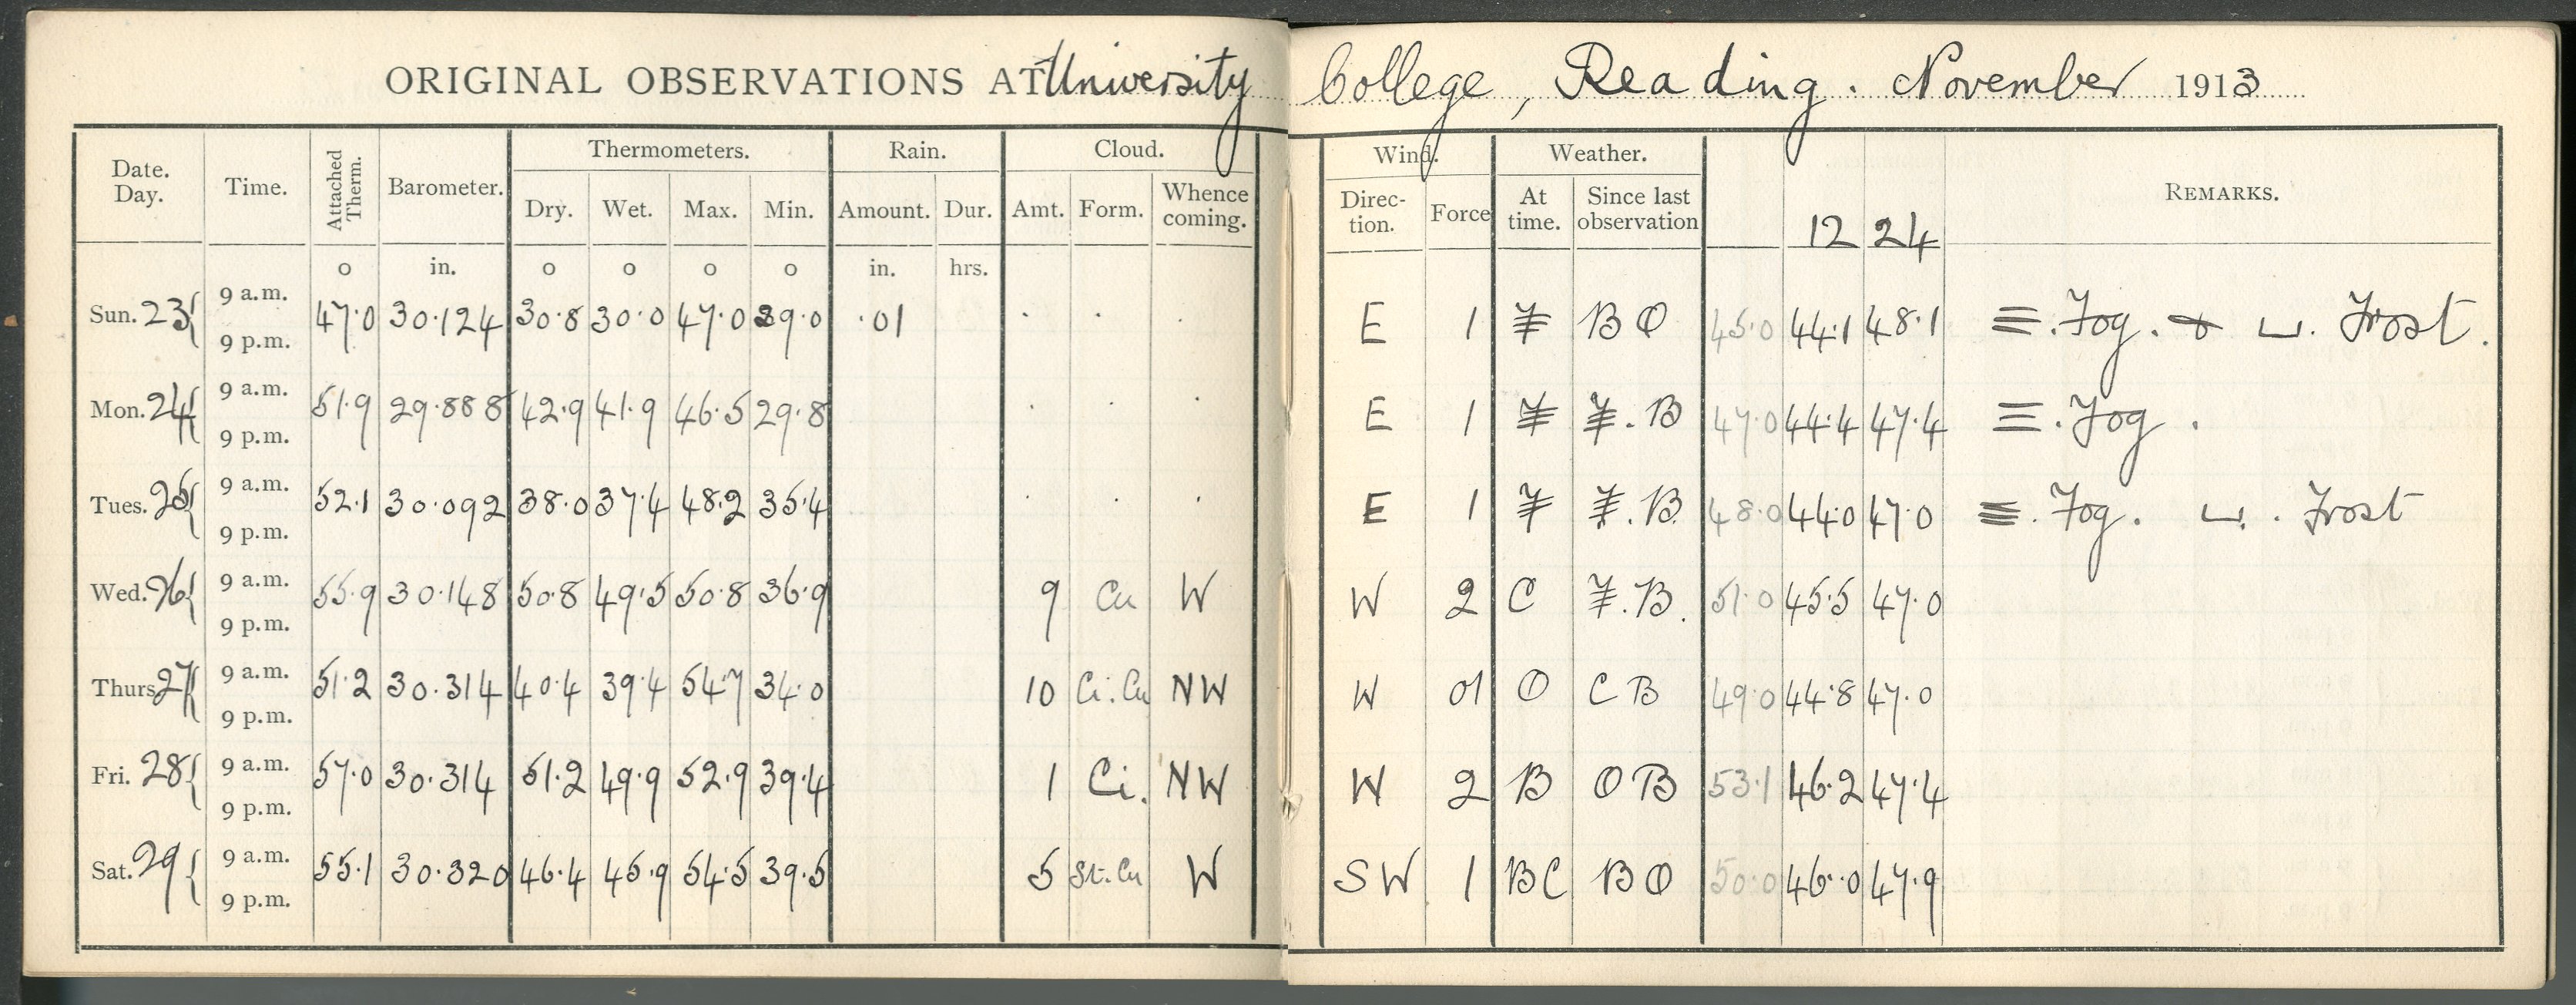 ORIGINAL OBSERVATIONS AT University College, Reading. November 1913
Date. Day. Time. Attached Therm. Barometer. Thermometers. Rain. Cloud. Wind. Weather. REMARKS.
Dry. Wet. Max. Min. Amount. Dur. Amt. Form. Whence coming. Direc- tion. Force At time. Since last observation 12 24
o in. o o o o in. hrs.
Sun. 23 9 a.m. 47.0 30.124 30.8 30.0 47.0 29.0 .01 . . . E 1 F BO 45.0 44.1 48.1 ≡. Fog. ⊔. Frost.
9 p.m.
Mon. 24 9 a.m. 51.9 29.888 42.9 41.9 46.5 29.8 . . . E 1 F F.B 47.0 44.4 47.4 ≡. Fog.
9 p.m.
Tues. 25 9 a.m. 52.1 30.092 38.0 37.4 48.2 35.4 . . . E 1 F F.B. 48.0 44.0 47.0 ≡. Fog. ⊔. Frost
9 p.m.
Wed. 26 9 a.m. 55.9 30.148 50.8 49.5 50.8 36.9 9 Cu W W 2 C F.B. 51.0 45.5 47.0
9 p.m.
Thurs 27 9 a.m. 51.2 30.314 40.4 39.4 54.7 34.0 10 Ci.Cu NW W 01 O CB 49.0 44.8 47.0
9 p.m.
Fri. 28 9 a.m. 57.0 30.314 51.2 49.9 52.9 39.4 1 Ci. NW W 2 B OB 53.1 46.2 47.4
9 p.m.
Sat. 29 9 a.m. 55.1 30.320 46.4 45.9 54.5 39.5 5 St.Cu W SW 1 BC BO 50.0 46.0 47.9
9 p.m.